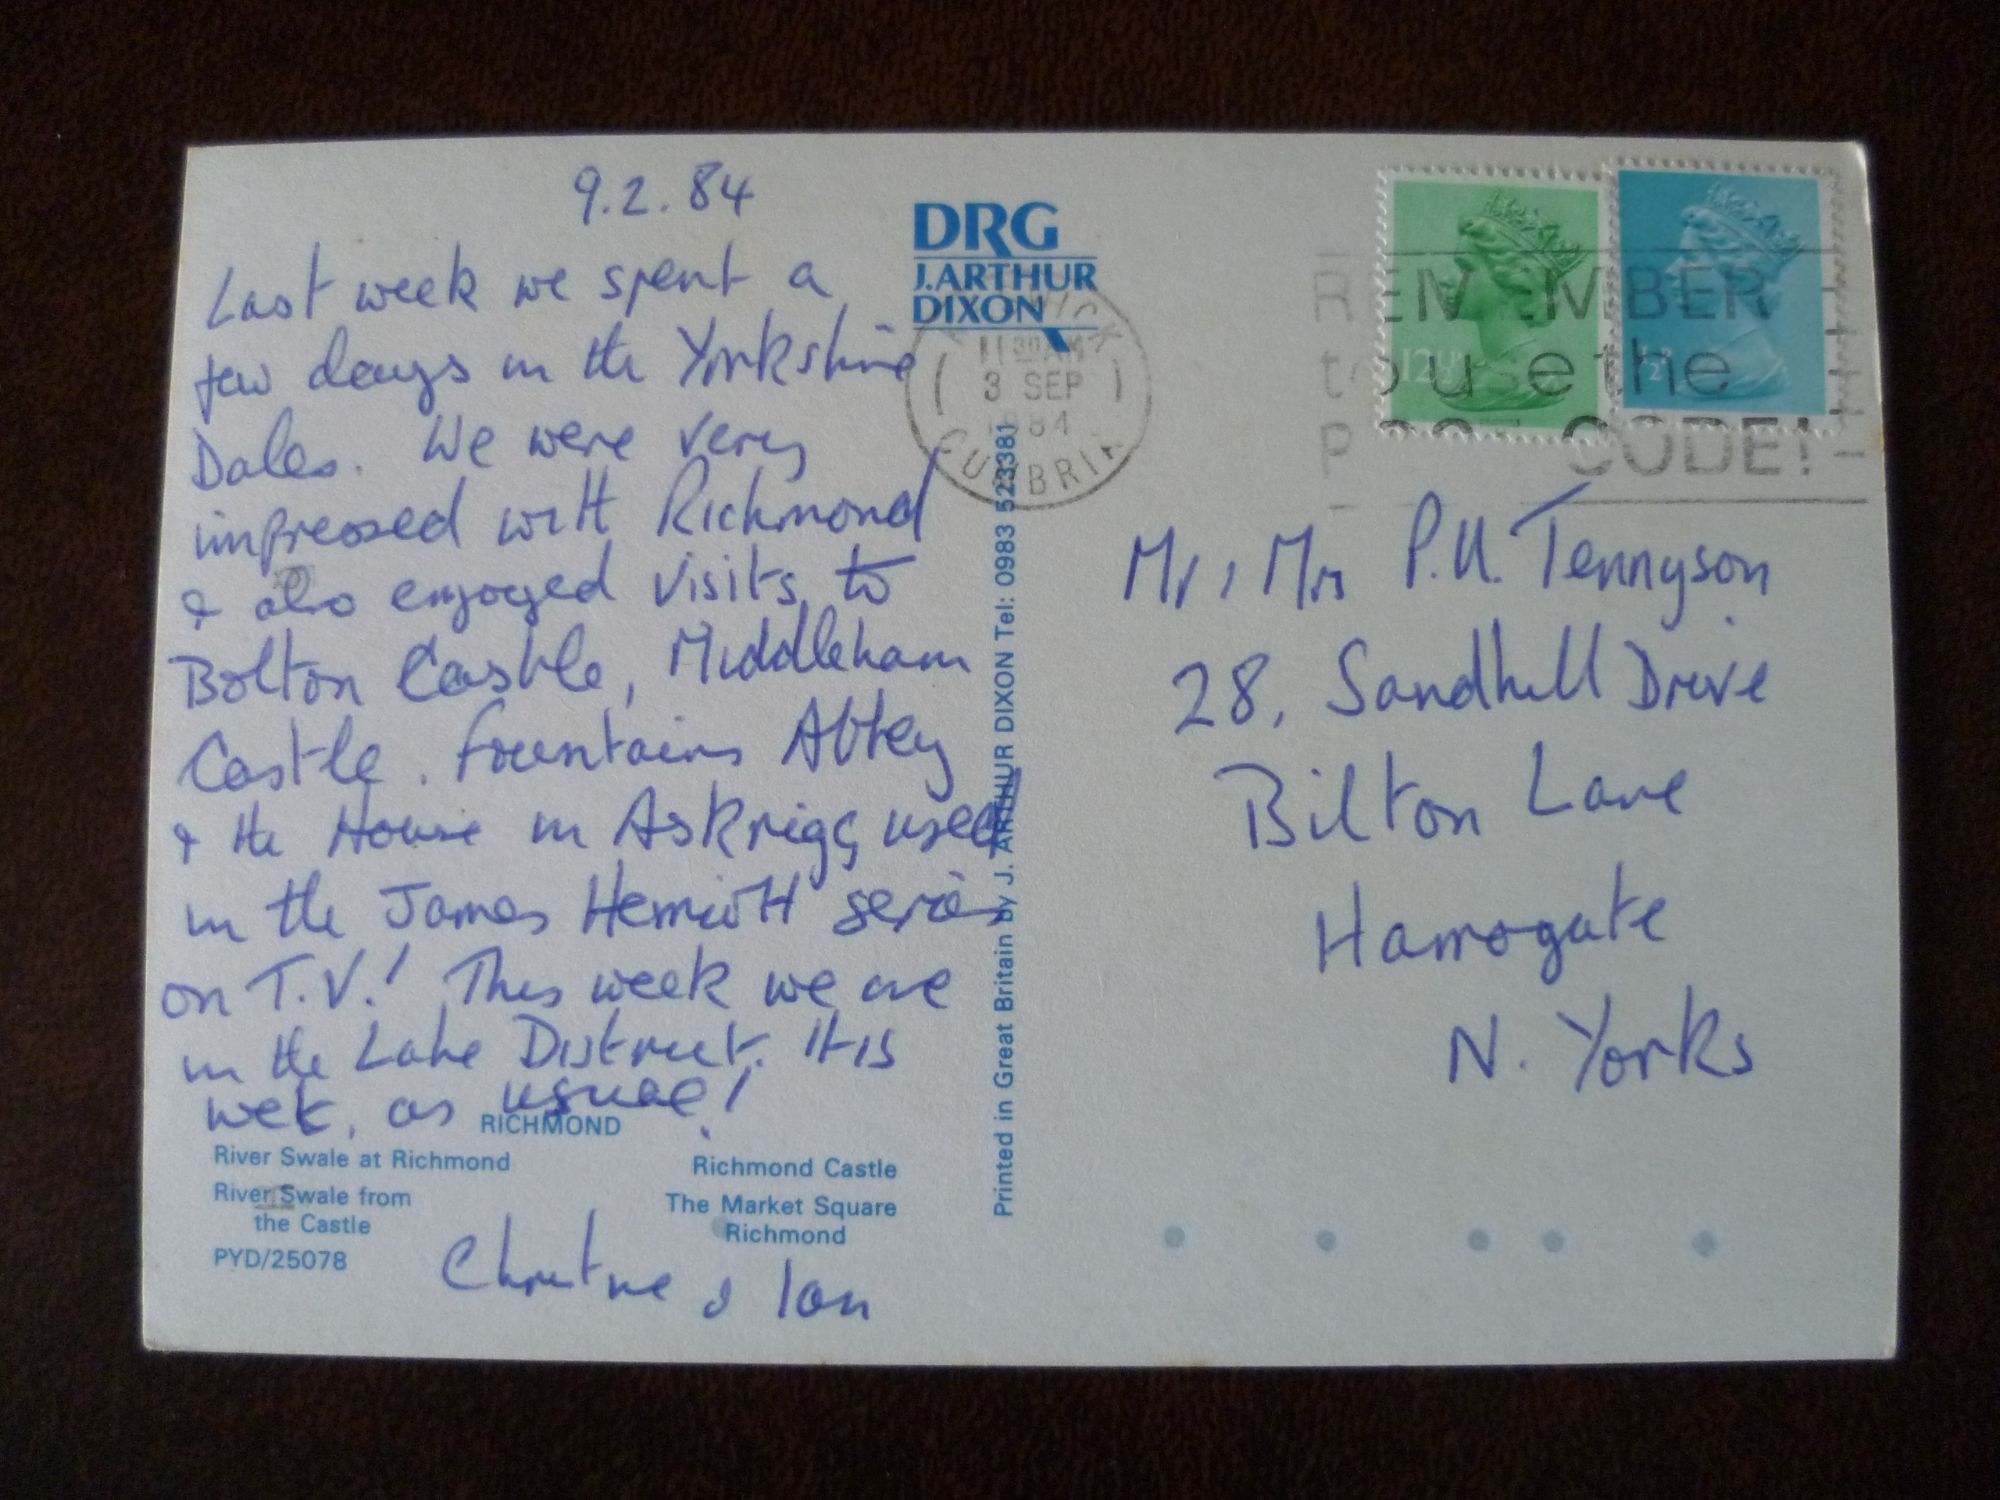 9.2.84
Last week we spent a
few days in the Yorkshire
Dales. We were very
impressed with Richmond
& also enjoyed visits to
Bolton Castle, Middleham
Castle. Fountains Abbey
& the House in Askrigg used
in the James Herriott series
on T.V.! This week we are
in the Lake District. It is
wet, as usual!
RICHMOND
River Swale at Richmond
River Swale from
the Castle
PYD/25078
Richmond Castle
The Market Square
Richmond
Christine & Ian
DRG
J.ARTHUR
DIXON
Printed in Great Britain by J. ARTHUR DIXON Tel: 0983 523381
11 30 AM
3 SEP
1984
CUMBRIA
REMEMBER
to use the
POST CODE!
12½P
½P
Mr & Mrs P.H. Tennyson
28, Sandhill Drive
Bilton Lane
Harrogate
N. Yorks